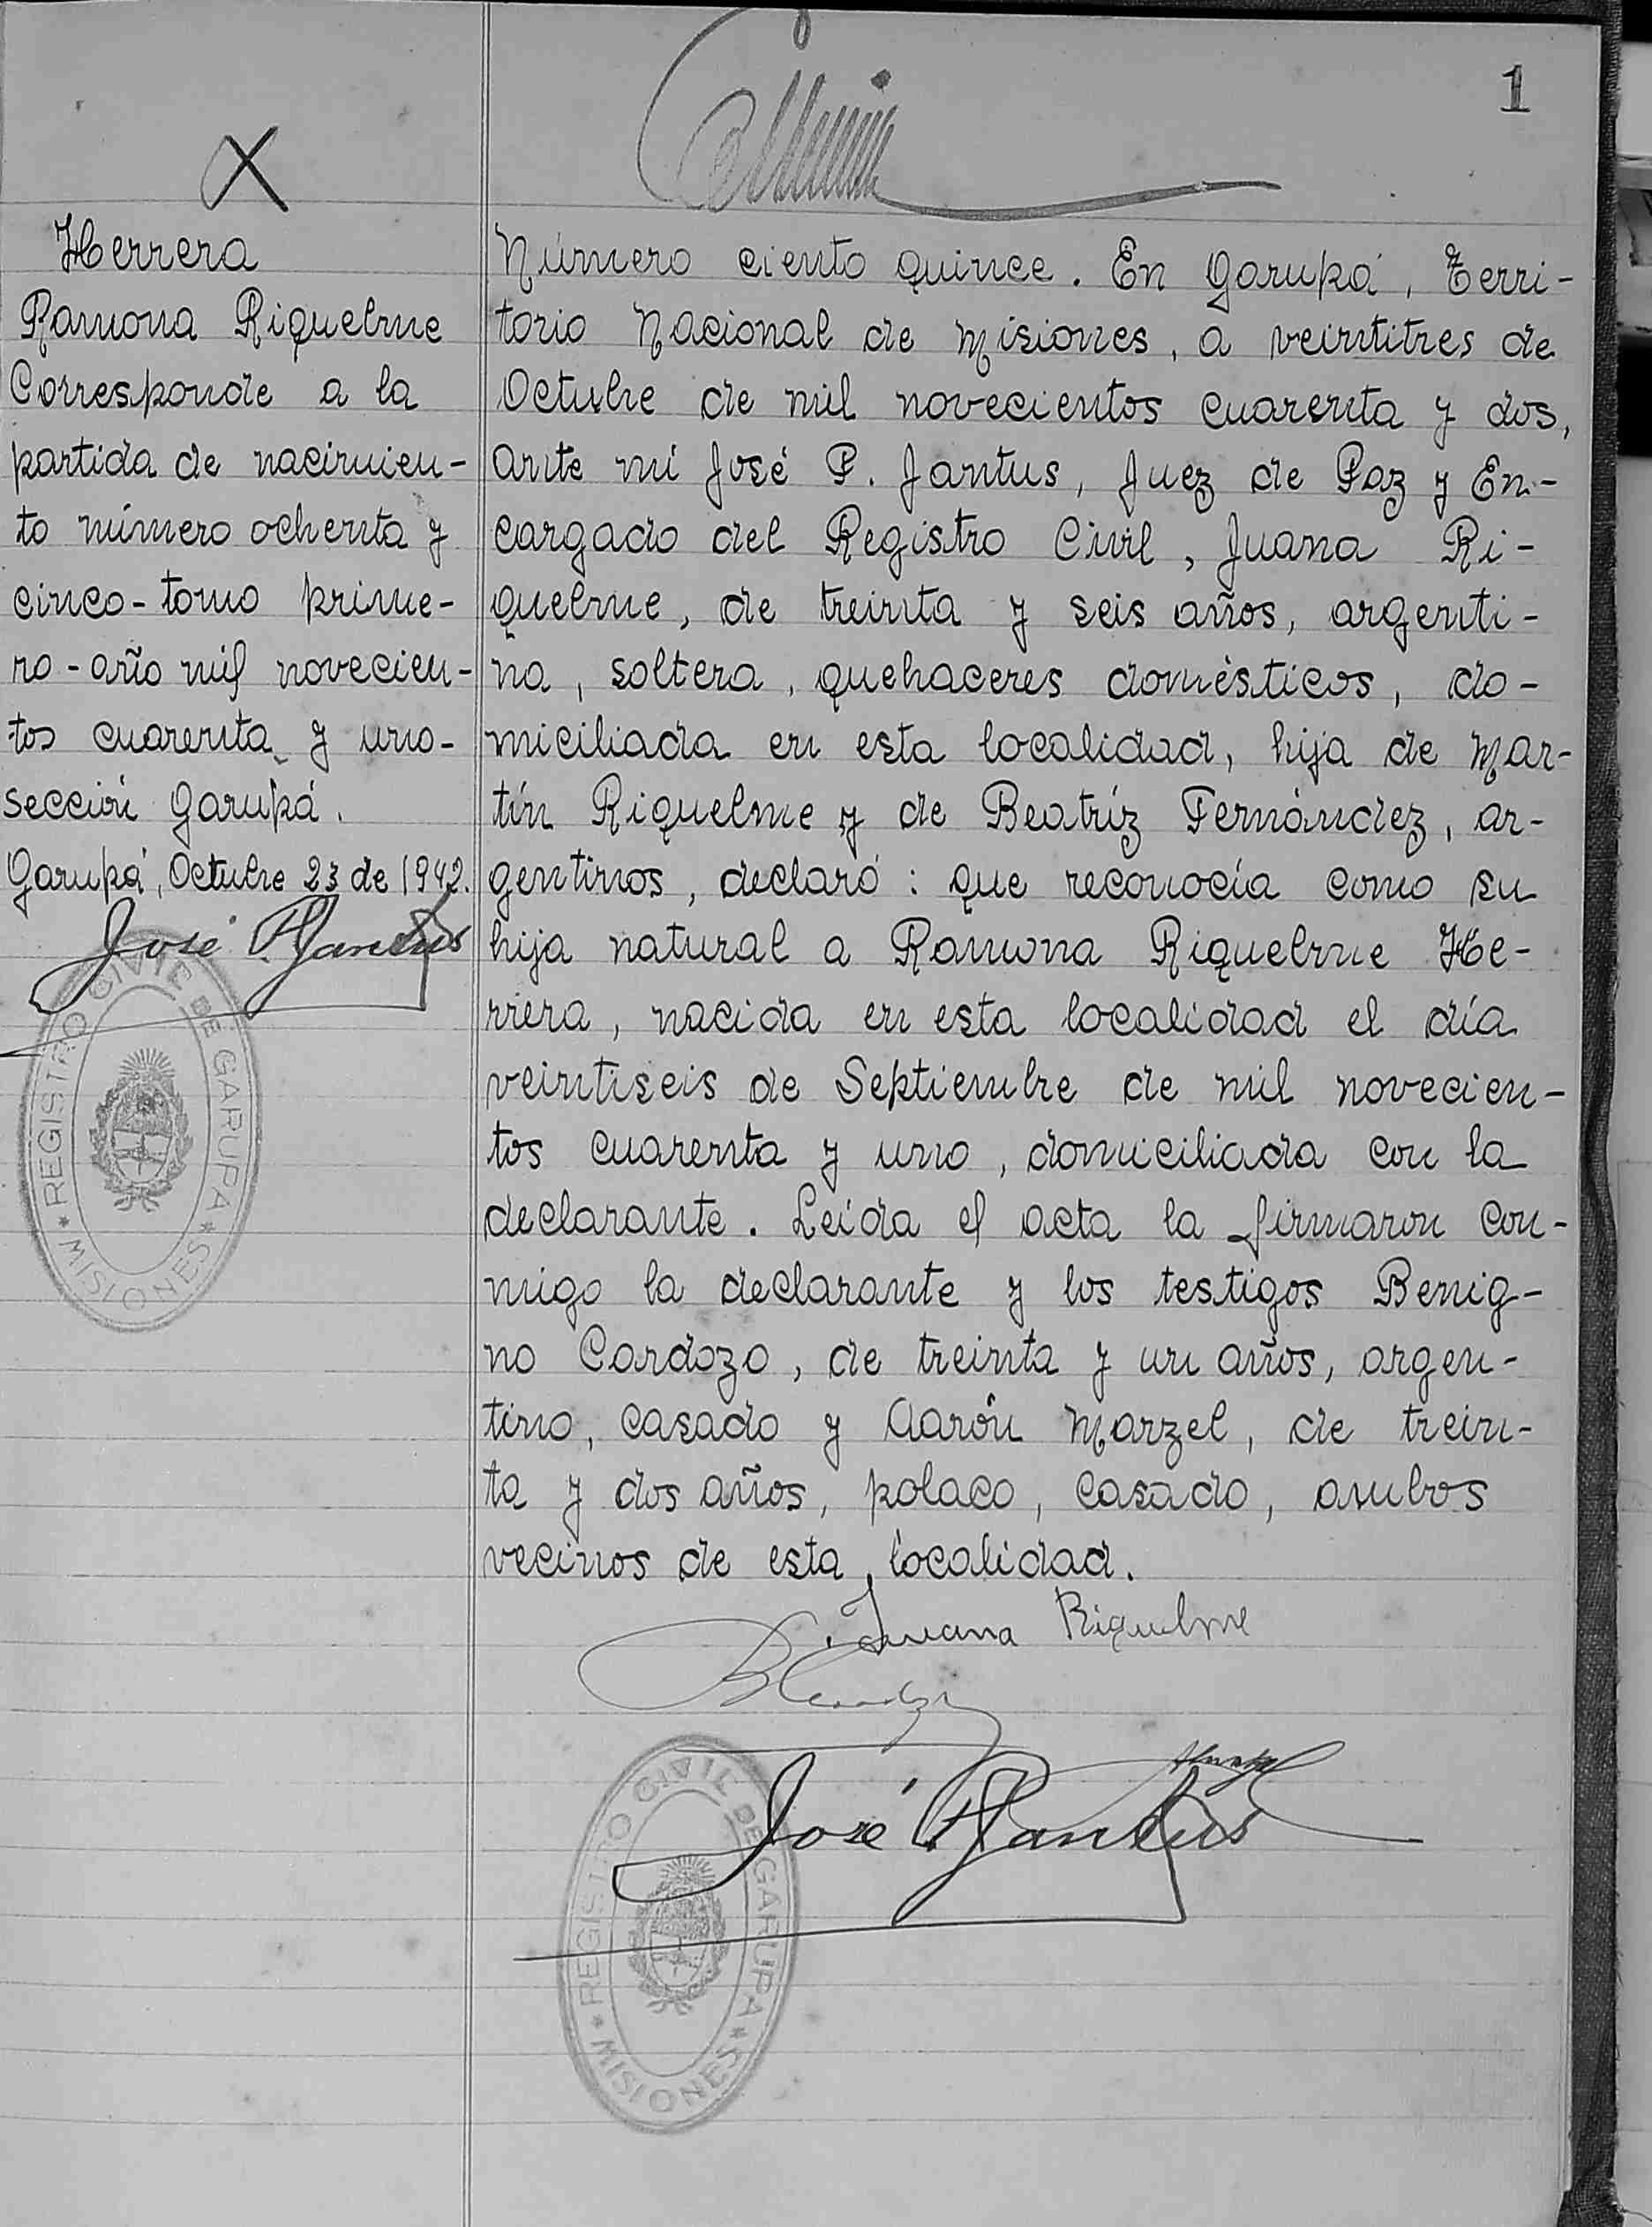 1
Herrera
Ramona Riquelme
Corresponde a la
partida de nacimien-
to número ochenta y
cinco - tomo prime-
ro - año mil novecien-
tos cuarenta y uno -
sección Garupá.
Garupá, Octubre 23 de 1942.
José P. Jantus
REGISTRO CIVIL DE GARUPA
* MISIONES *
Número ciento quince. En Garupá, Terri-
torio Nacional de Misiones, a veintitres de
Octubre de mil novecientos cuarenta y dos,
ante mí José P. Jantus, Juez de Paz y En-
cargado del Registro Civil, Juana Ri-
quelme, de treinta y seis años, argenti-
na, soltera, quehaceres domésticos, do-
miciliada en esta localidad, hija de Mar-
tín Riquelme y de Beatríz Fernández, ar-
gentinos, declaró: que reconocía como su
hija natural a Ramona Riquelme He-
rrera, nacida en esta localidad el día
veintiseis de Septiembre de mil novecien-
tos cuarenta y uno, domiciliada con la
declarante. Leída el acta la firmaron con-
migo la declarante y los testigos Benig-
no Cardozo, de treinta y un años, argen-
tino, casado y Aarón Marzel, de trein-
ta y dos años, polaco, casado, ambos
vecinos de esta localidad.
Juana Riquelme
José P. Jantus
REGISTRO CIVIL DE GARUPA
* MISIONES *